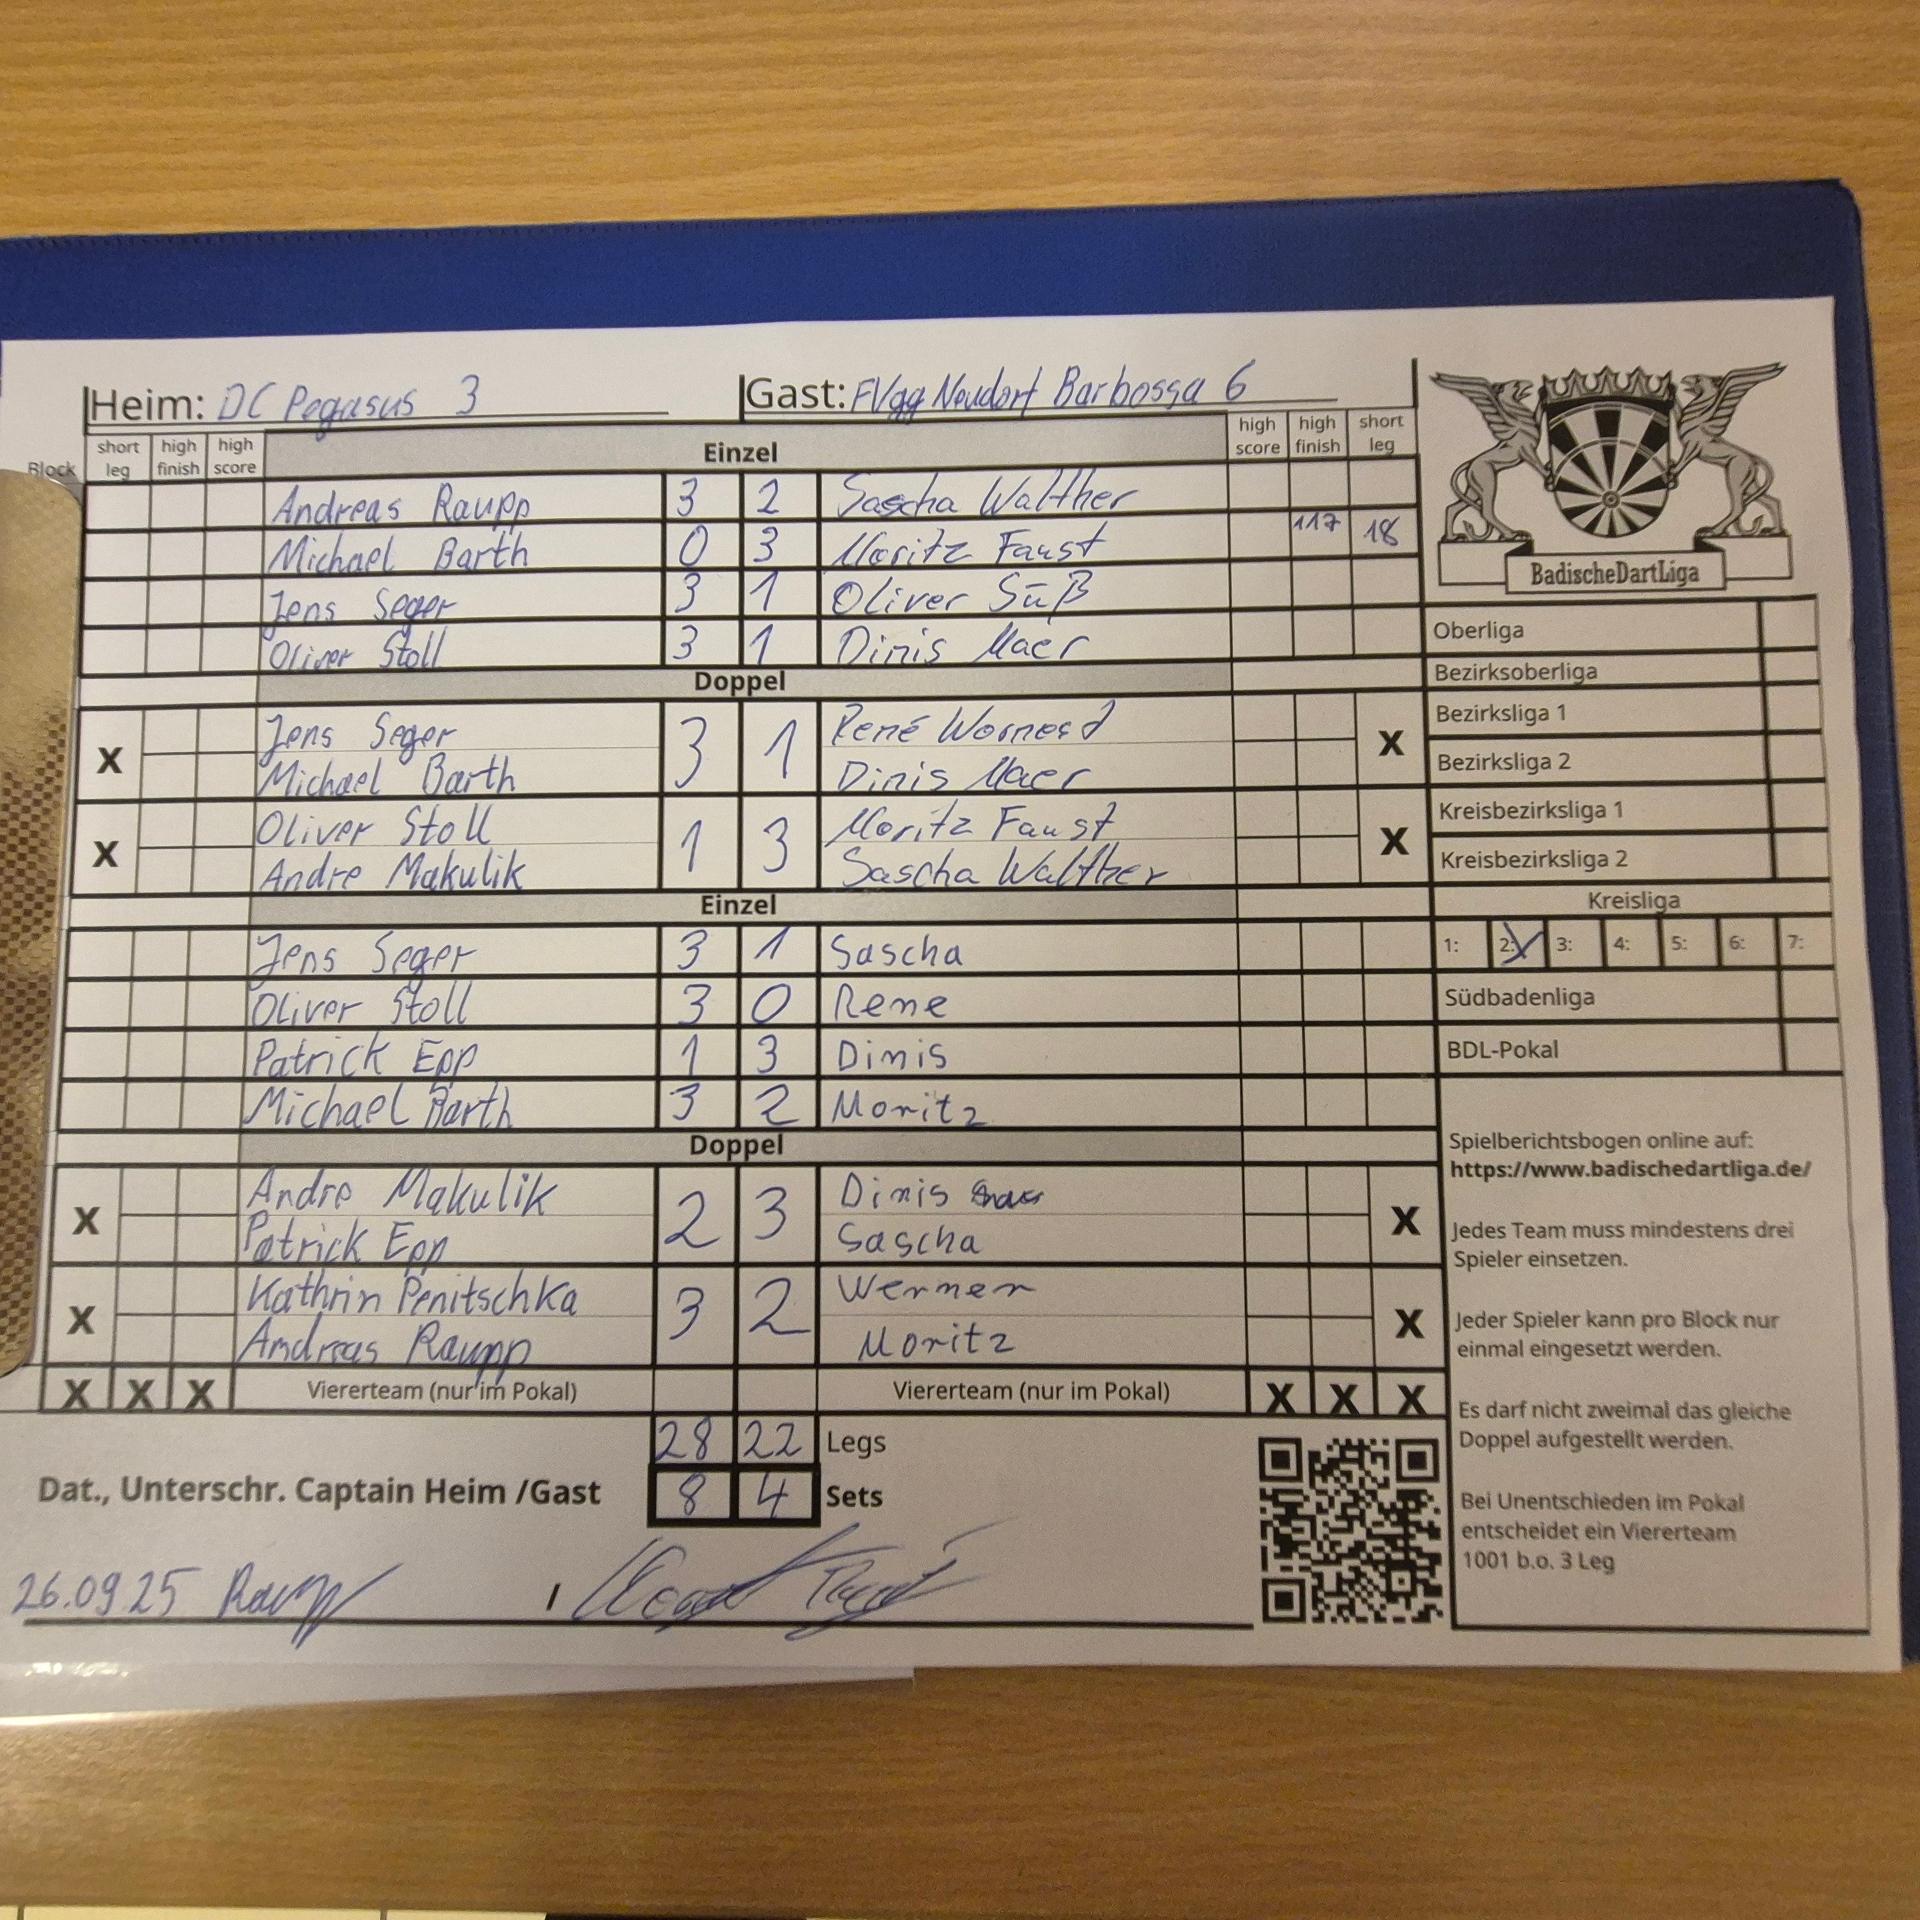 Heim: DC Pegasus 3 Gast: FVgg Neudorf Barbossa 6
Block short leg high finish high score Einzel high score high finish short leg
Andreas Raupp 3 2 Sascha Walther
Michael Barth 0 3 Moritz Faust 117 18
Jens Seger 3 1 Oliver Süß
Oliver Stoll 3 1 Dinis Maer
Doppel
Jens Seger René
X 3 1 X
Michael Barth Dinis Maer
Oliver Stoll Moritz Faust
X 1 3 X
Andre Makulik Sascha Walther
Einzel
Jens Seger 3 1 Sascha
Oliver Stoll 3 0 Rene
Patrick Epp 1 3 Dinis
Michael Barth 3 2 Moritz
Doppel
Andre Makulik Dinis
X 2 3 X
Patrick Epp Sascha
Kathrin Penitschka Werner
X 3 2 X
Andreas Raupp Moritz
X X X Viererteam (nur im Pokal) Viererteam (nur im Pokal) X X X
28 22 Legs
Dat., Unterschr. Captain Heim /Gast 8 4 Sets
26.09.25 Raupp /
BadischeDartLiga
Oberliga
Bezirksoberliga
Bezirksliga 1
Bezirksliga 2
Kreisbezirksliga 1
Kreisbezirksliga 2
Kreisliga
1: 2: 3: 4: 5: 6: 7:
Südbadenliga
BDL-Pokal
Spielberichtsbogen online auf:
https://www.badischedartliga.de/
Jedes Team muss mindestens drei
Spieler einsetzen.
Jeder Spieler kann pro Block nur
einmal eingesetzt werden.
Es darf nicht zweimal das gleiche
Doppel aufgestellt werden.
Bei Unentschieden im Pokal
entscheidet ein Viererteam
1001 b.o. 3 Leg